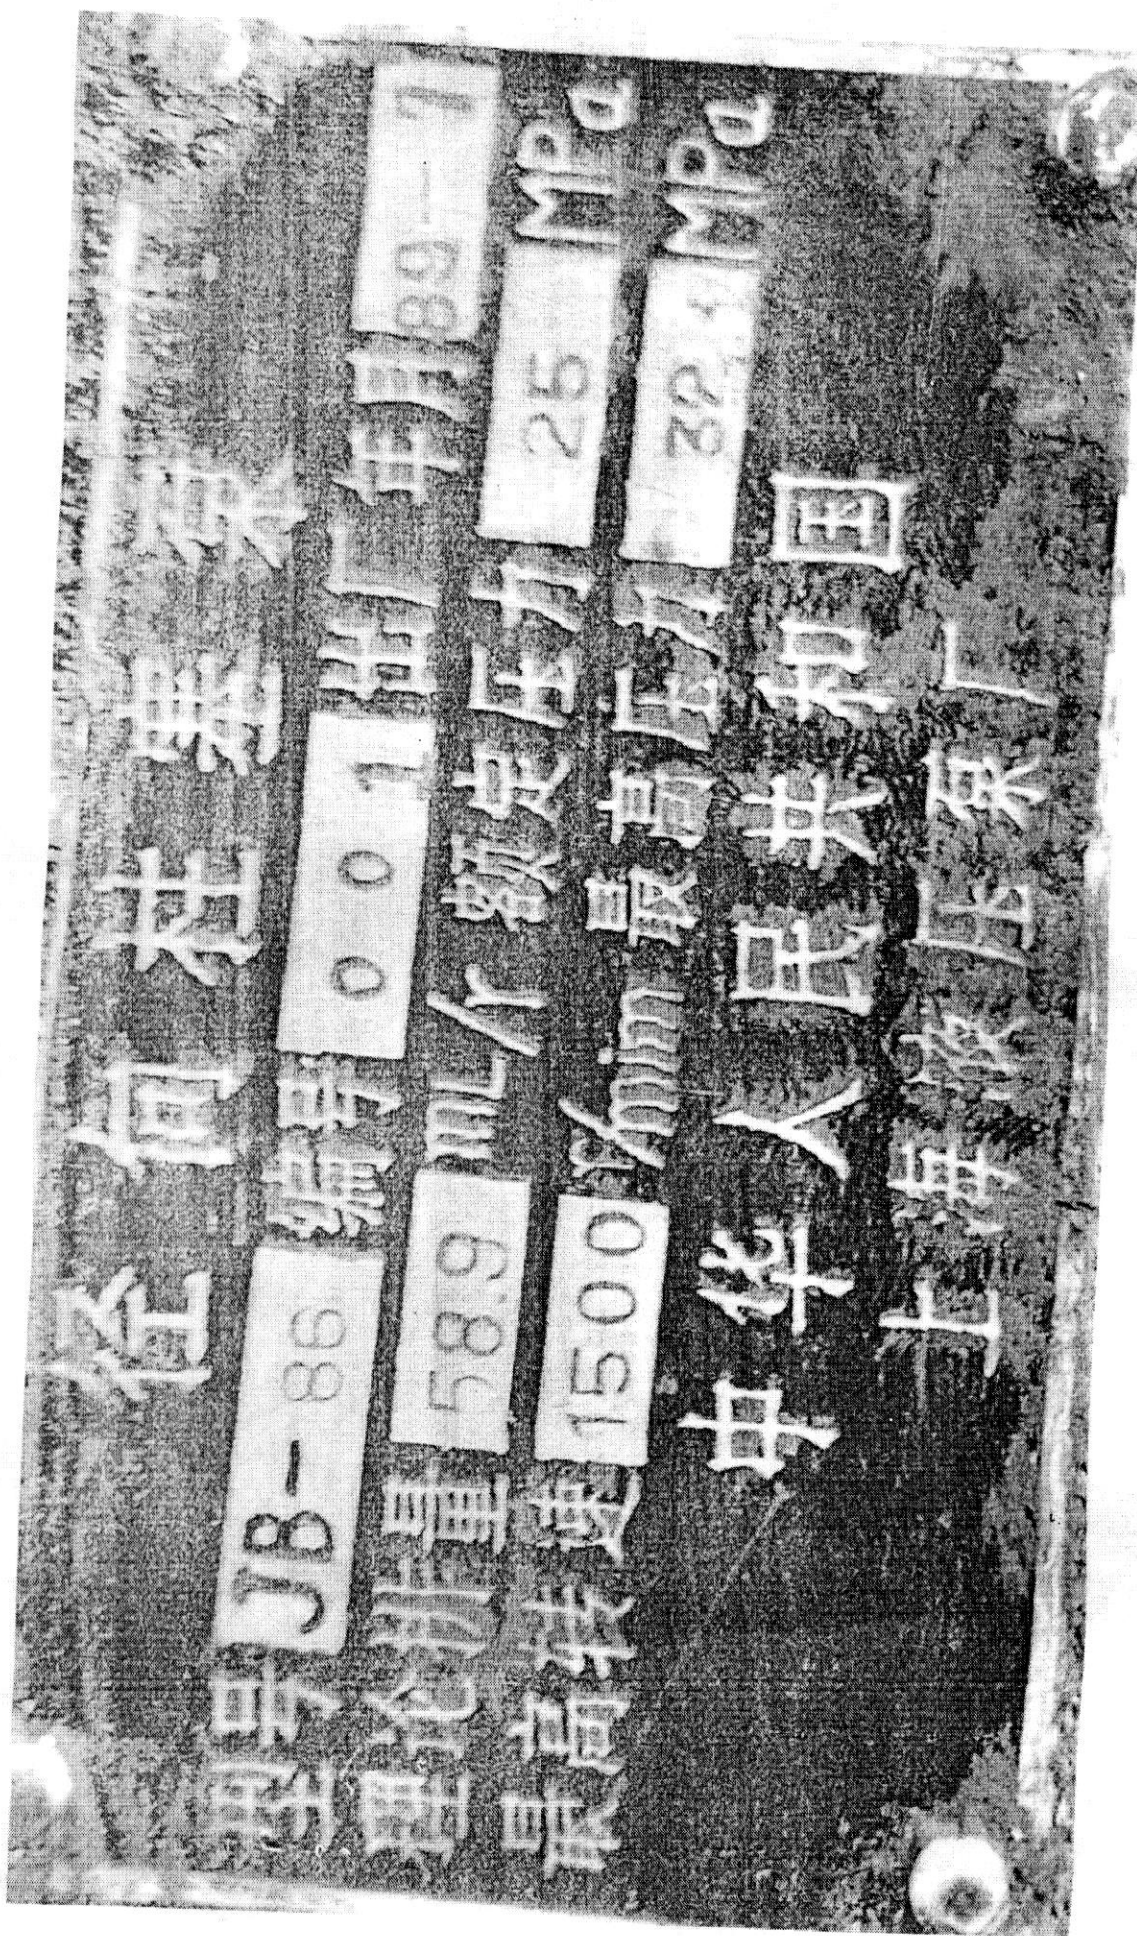 径向柱塞泵
型号 JB-86 编号 001 出厂年月 89-1
理论排量 589 mL/r 额定压力 25 MPa
最高转速 1500 r/min 最高压力 32 MPa
中华人民共和国
上海液压泵厂